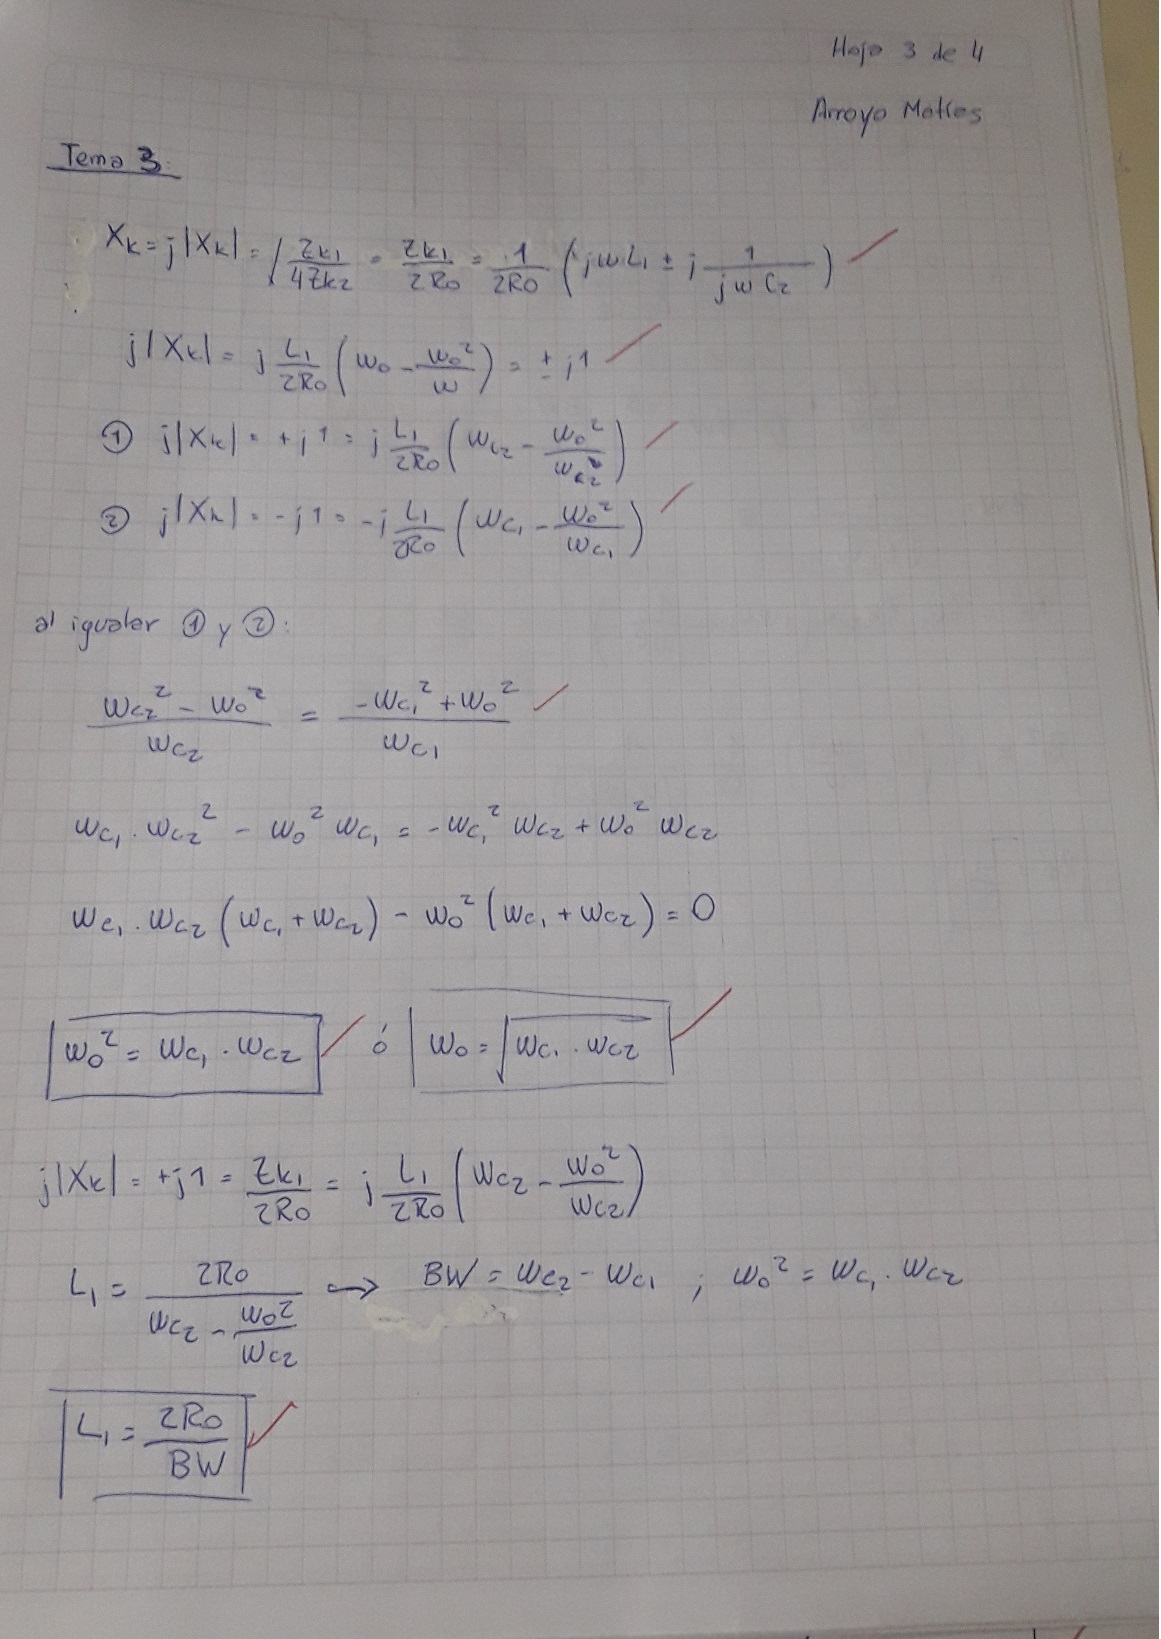 Hoja 3 de 4
Arroyo Matías
Tema 3:
Xk = j|Xk| = √(Zk1/4Zk2) = Zk1/2R0 = 1/2R0 (jωL1 ± j 1/jωC2)
j|Xk| = j L1/2R0 (ω0 - ω0²/ω) = ± j1
① j|Xk| = +j1 = j L1/2R0 (ωc2 - ω0²/ωc2)
② j|Xk| = -j1 = -j L1/2R0 (ωc1 - ω0²/ωc1)
al igualar ① y ②:
(ωc2² - ω0²)/ωc2 = (-ωc1² + ω0²)/ωc1
ωc1 . ωc2² - ω0² ωc1 = -ωc1² ωc2 + ω0² ωc2
ωc1 . ωc2 (ωc1 + ωc2) - ω0² (ωc1 + ωc2) = 0
ω0² = ωc1 . ωc2 ó ω0 = √(ωc1 . ωc2)
j|Xk| = +j1 = Zk1/2R0 = j L1/2R0 (ωc2 - ω0²/ωc2)
L1 = 2R0/(ωc2 - ω0²/ωc2) → BW = ωc2 - ωc1 ; ω0² = ωc1 . ωc2
L1 = 2R0/BW